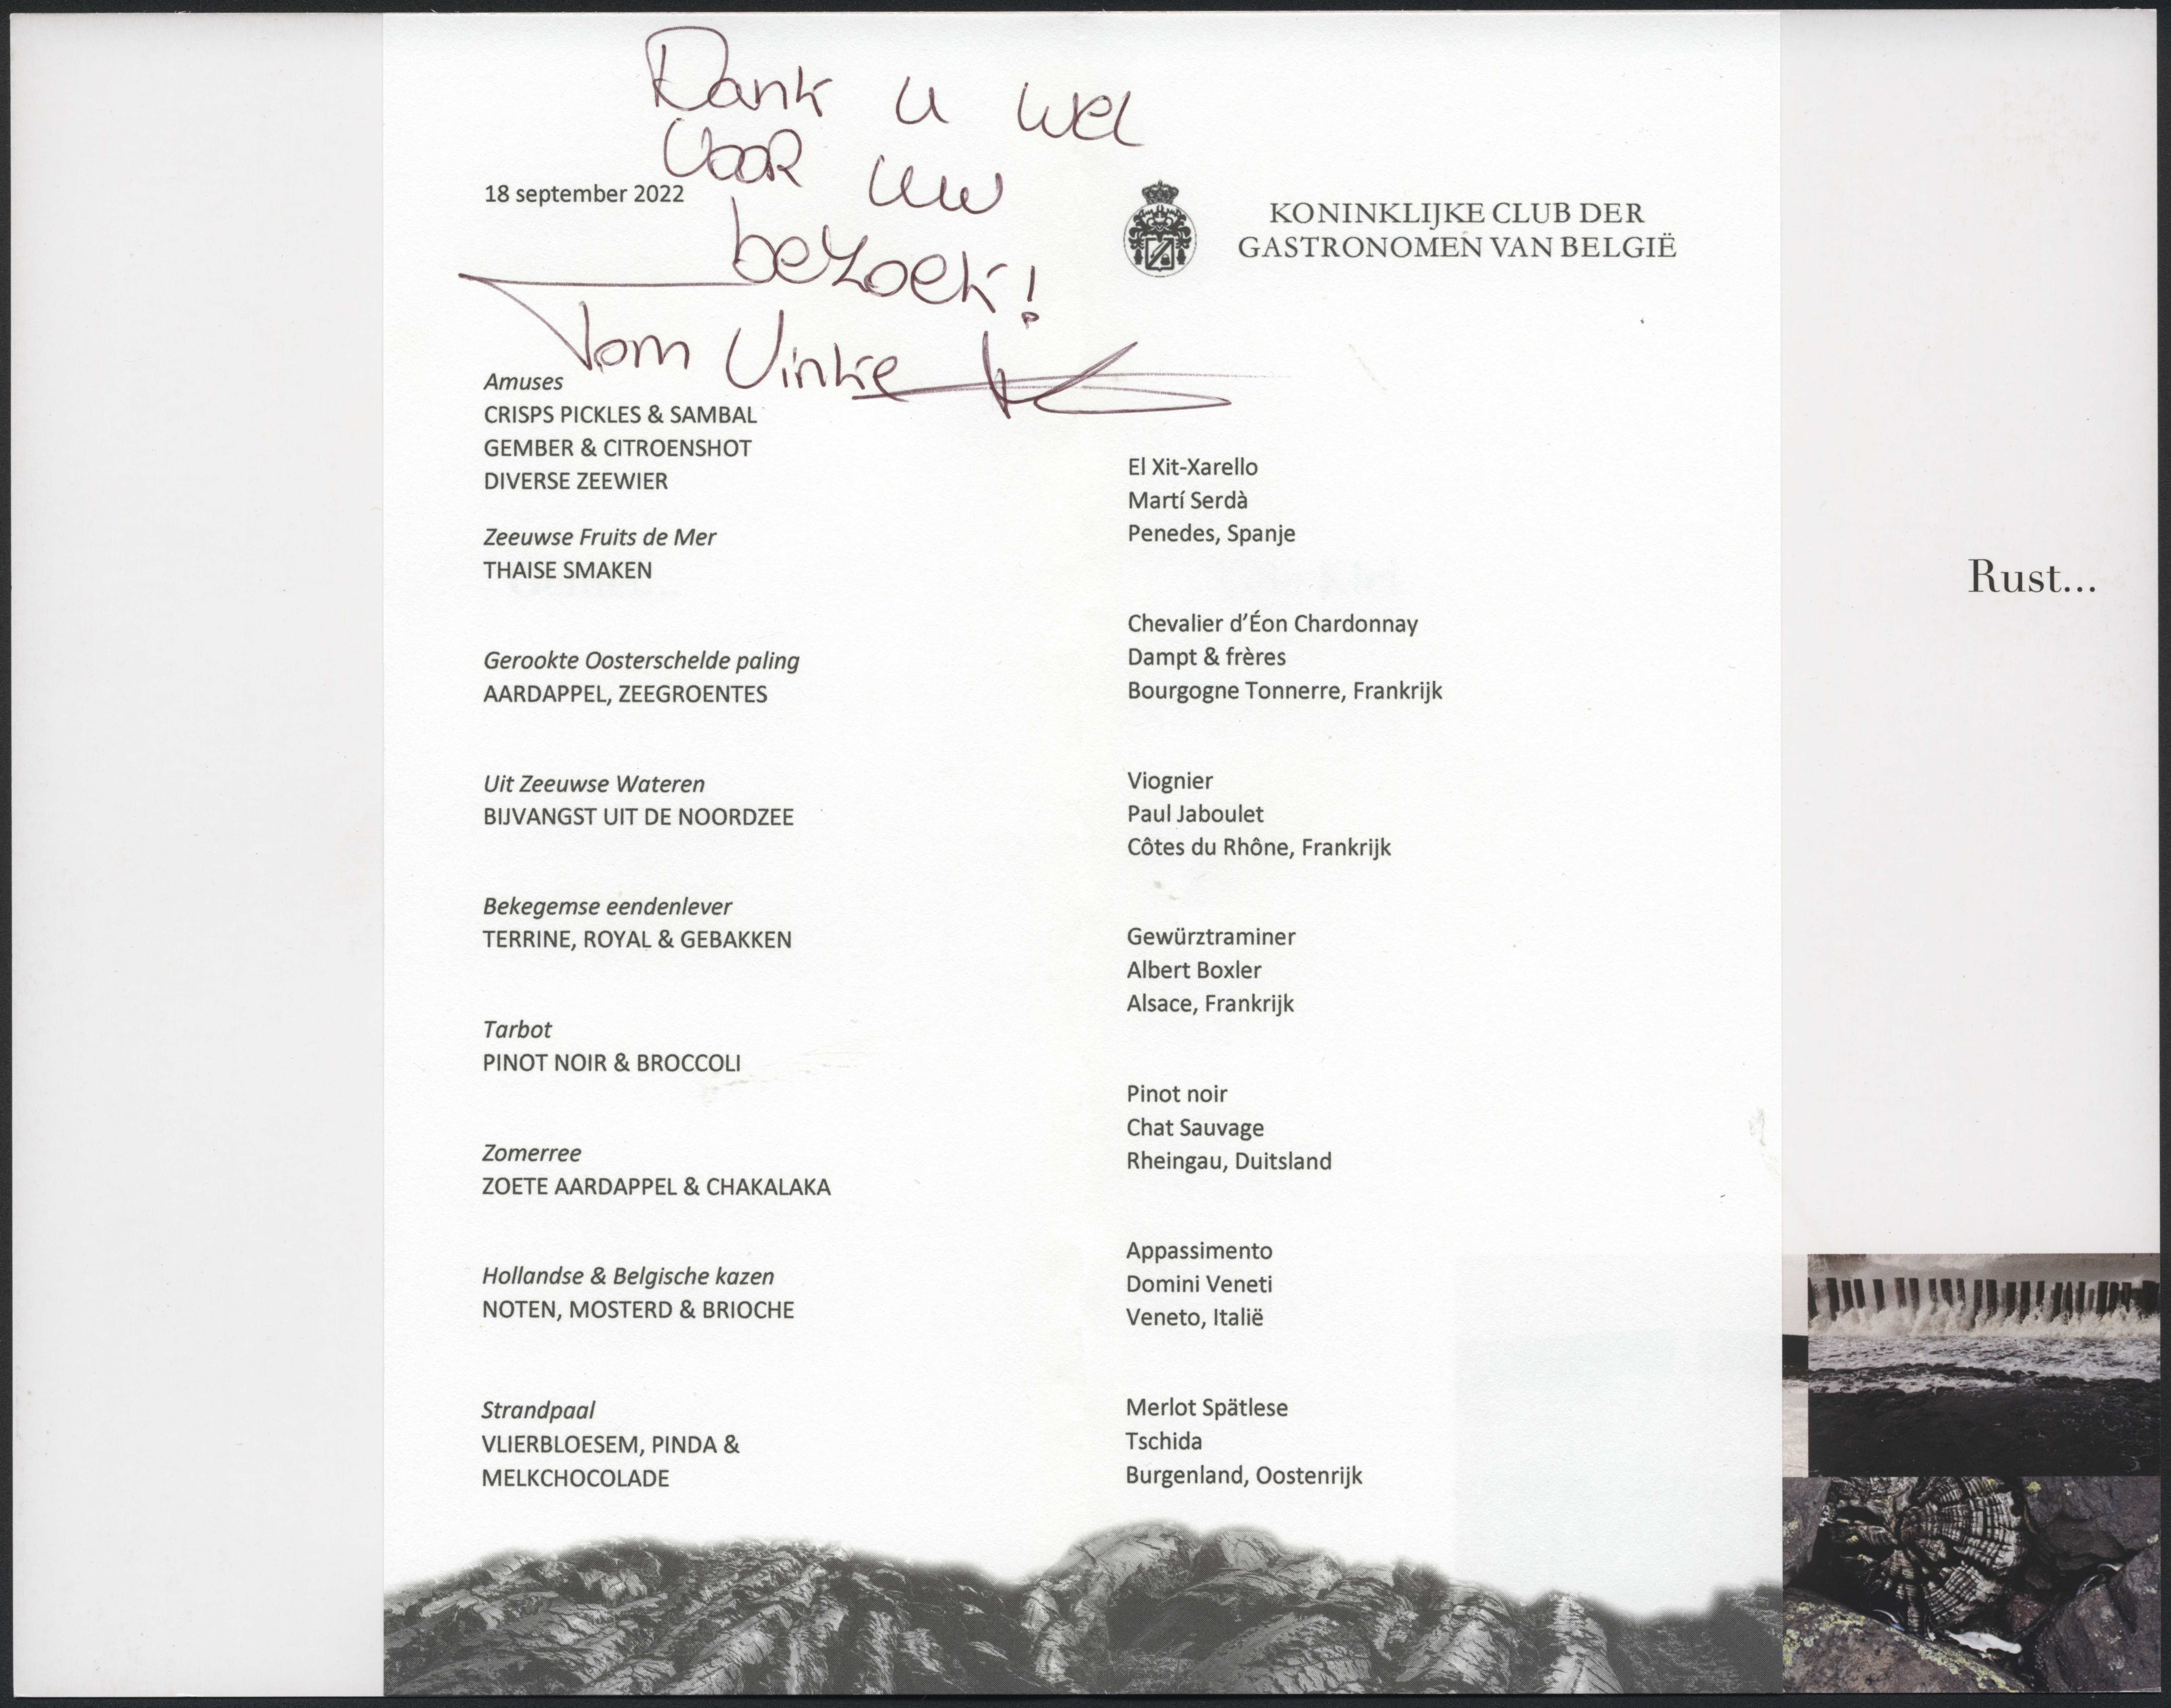 Dank u wel
voor uw
bezoek!
Tom Vinke
18 september 2022
KONINKLIJKE CLUB DER
GASTRONOMEN VAN BELGIË
Amuses
CRISPS PICKLES & SAMBAL
GEMBER & CITROENSHOT
DIVERSE ZEEWIER
Zeeuwse Fruits de Mer
THAISE SMAKEN
Gerookte Oosterschelde paling
AARDAPPEL, ZEEGROENTES
Uit Zeeuwse Wateren
BIJVANGST UIT DE NOORDZEE
Bekegemse eendenlever
TERRINE, ROYAL & GEBAKKEN
Tarbot
PINOT NOIR & BROCCOLI
Zomerree
ZOETE AARDAPPEL & CHAKALAKA
Hollandse & Belgische kazen
NOTEN, MOSTERD & BRIOCHE
Strandpaal
VLIERBLOESEM, PINDA &
MELKCHOCOLADE
El Xit-Xarello
Martí Serdà
Penedes, Spanje
Chevalier d’Éon Chardonnay
Dampt & frères
Bourgogne Tonnerre, Frankrijk
Viognier
Paul Jaboulet
Côtes du Rhône, Frankrijk
Gewürztraminer
Albert Boxler
Alsace, Frankrijk
Pinot noir
Chat Sauvage
Rheingau, Duitsland
Appassimento
Domini Veneti
Veneto, Italië
Merlot Spätlese
Tschida
Burgenland, Oostenrijk
Rust...